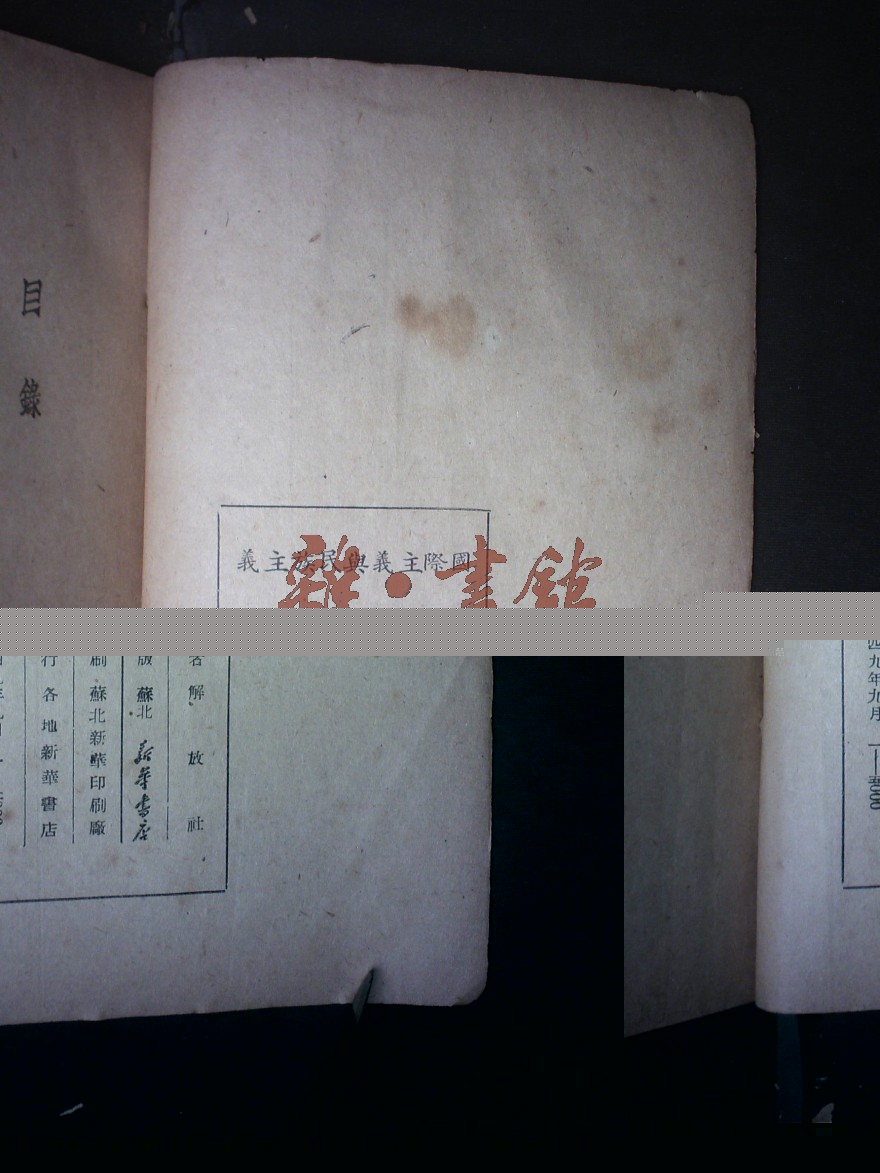 目錄
國際主義與民族主義
雜·書館
者 解放社
版 蘇北新華書店
刷 蘇北新華印刷廠
行 各地新華書店
四九年九月